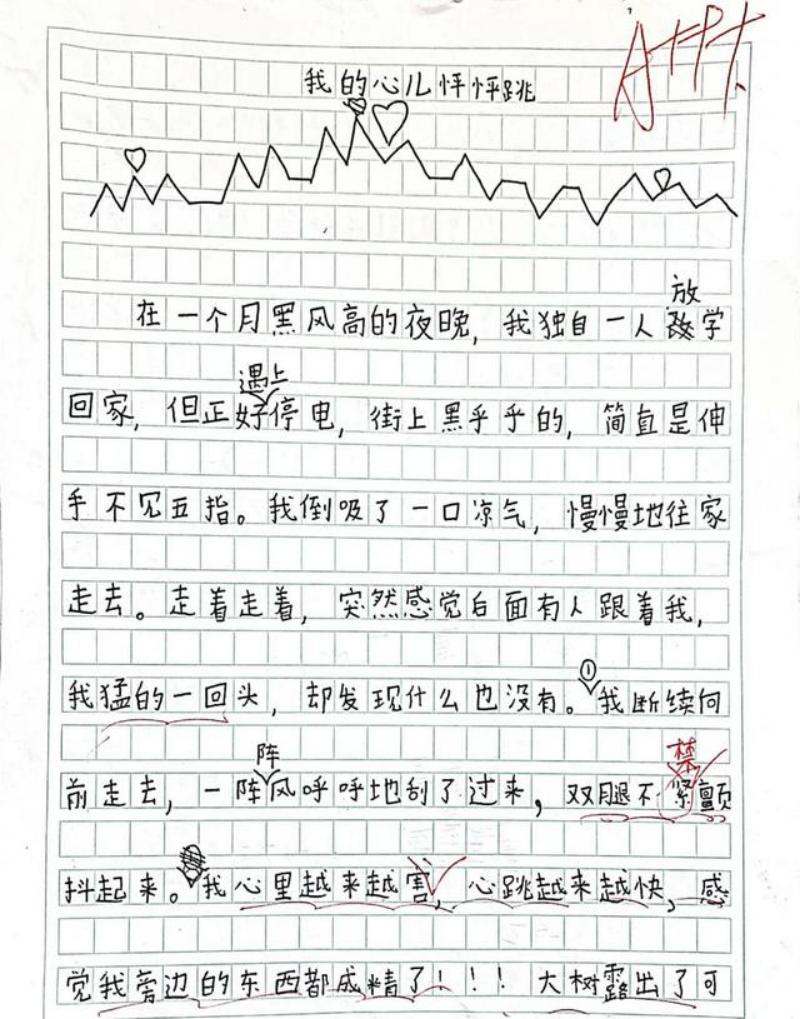 A++
我的心儿怦怦跳
放
在一个月黑风高的夜晚，我独自一人学
遇上
回家，但正好停电，街上黑乎乎的，简直是伸
手不见五指。我倒吸了一口凉气，慢慢地往家
走去。走着走着，突然感觉后面有人跟着我，
①
我猛的一回头，却发现什么也没有。我断续向
禁
阵
前走去，一阵风呼呼地刮了过来，双腿不紧颤
抖起来。我心里越来越害，心跳越来越快，感
觉我旁边的东西都成精了！！！大树露出了可